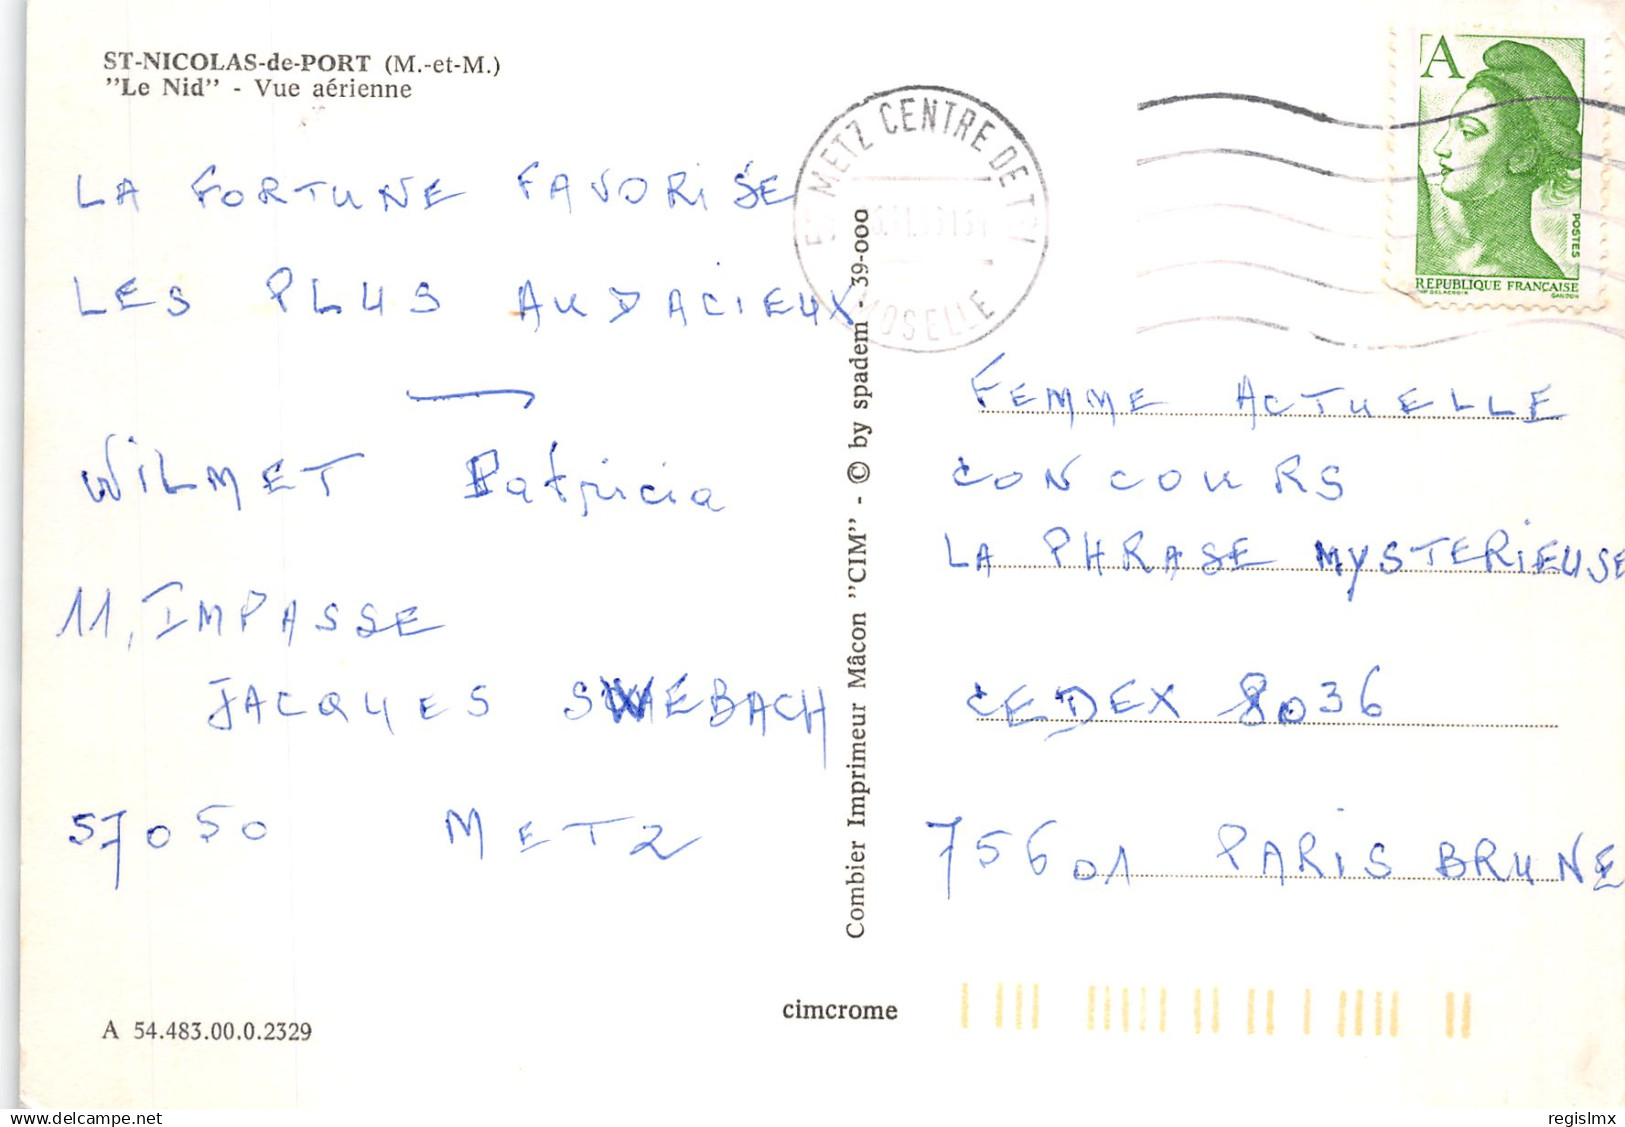 ST-NICOLAS-de-PORT (M.-et-M.)
"Le Nid" - Vue aérienne
LA FORTUNE FAVORISE
LES PLUS AUDACIEUX
WILMET Patricia
11, IMPASSE
JACQUES SWEBACH
57050 METZ
A 54.483.00.0.2329
Combier Imprimeur Mâcon "CIM" - © by spadem - 39-000
cimcrome
METZ CENTRE DE TRI
MOSELLE
A
POSTES
REPUBLIQUE FRANÇAISE
D'AP DELACROIX GANDON
FEMME ACTUELLE
CONCOURS
LA PHRASE MYSTERIEUSE
CEDEX 8036
75601 PARIS BRUNE
regislmx